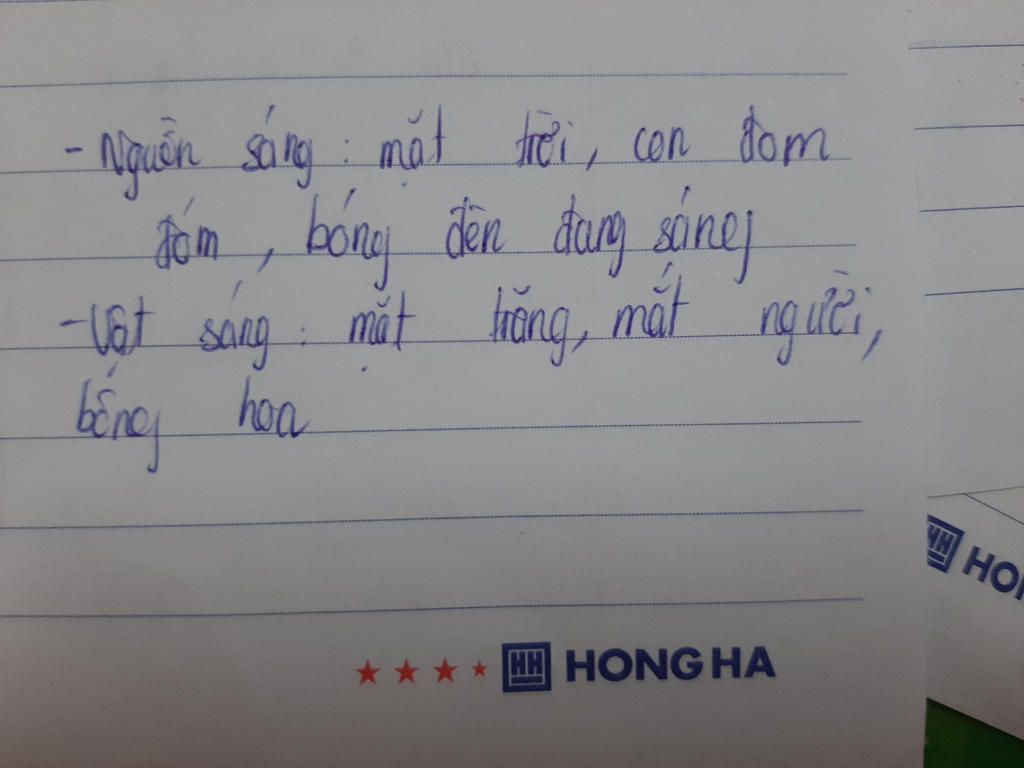 - Nguồn sáng : mặt trời, con đom
đóm, bóng đèn đang sáng
- Vật sáng : mặt trăng, mắt người,
bông hoa
HH HONG HA
HH HON